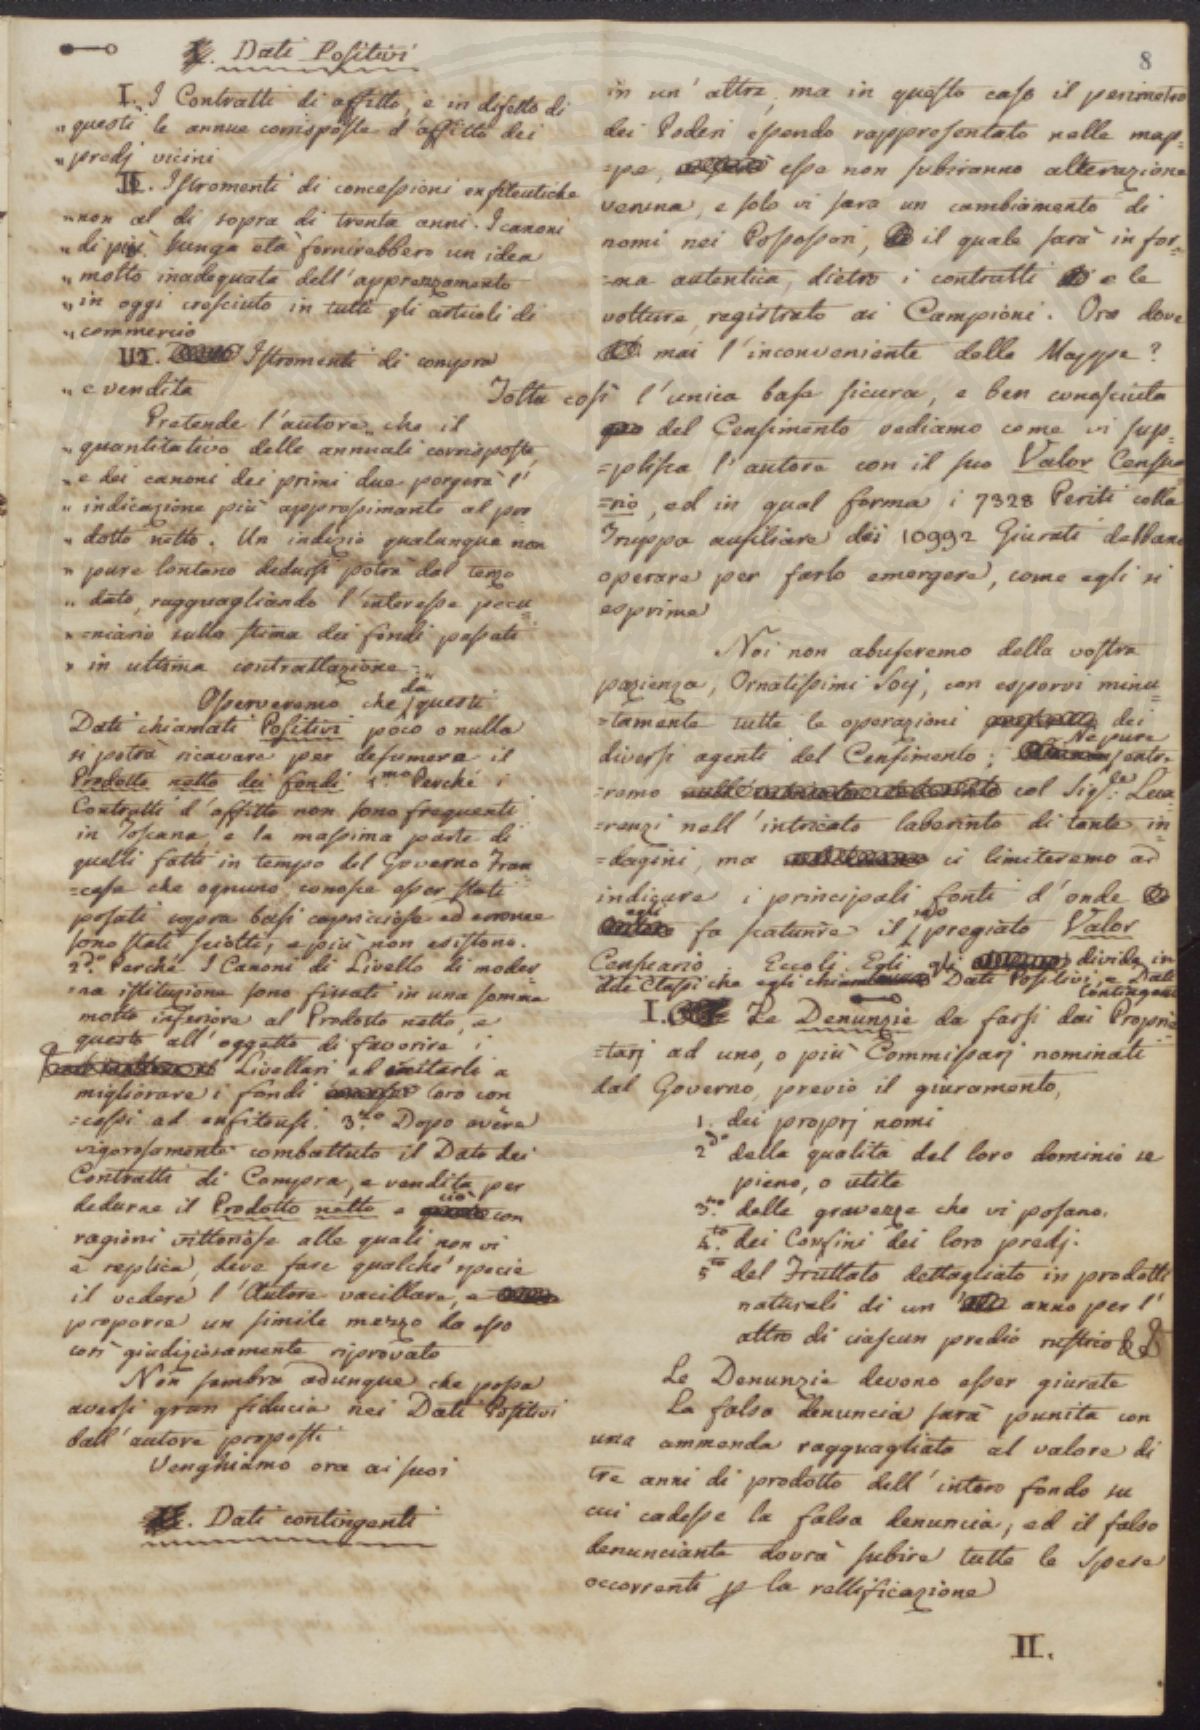 8
I. Dati Positivi
I. I Contratti di affitto, e in difetto di
" questi le annue corrisposte d'affitto dei
" predj vicini
II. Istromenti di concessioni enfiteutiche
" non al di sopra di trenta anni. I canoni
" di più lunga età fornirebbero un idea
" molto inadeguata dell'apprezzamento
" in oggi cresciuto in tutti gli articoli di
" commercio
III. Istromenti di compra
" e vendita
Pretende l'autore " che il
" quantitativo delle annuali corrisposte,
" e dei canoni dei primi due porgerà l'
" indicazione più approssimante al pro
" dotto netto. Un indizio qualunque non
" pure lontano dedursi potrà dal terzo
" dato, ragguagliando l'interesse pecu=
" =niario sulla stima dei fondi passati
" in ultima contrattazione "
Osserveremo che da questi
Dati chiamati Positivi poco o nulla
si potrà ricavare per desumere il
Prodotto netto dei fondi 1.mo Perché i
Contratti d'affitto non sono frequenti
in Toscana, e la massima parte di
quelli fatti in tempo del Governo Fran
=cese che ognuno conosce esser stati
posati sopra basi capricciose ed erronee
sono stati sciolti, e più non esistono.
2.do Perché I Canoni di Livello di moder
=na istituzione sono fissati in una somma
molto inferiore al Prodotto netto, e
questo all'oggetto di favorire i
Livellari ed eccitarli a
migliorare i fondi loro con
=cessi ad enfiteusi. 3.zo Dopo avere
vigorosamente combattuto il Dato dei
Contratti di Compra, e vendita per
dedurne il Prodotto netto e ciò con
ragioni vittoriose alle quali non vi
è replica, deve fare qualche specie
il vedere l'Autore vacillare, e
proporre un simile mezzo da esso
così giudiziosamente riprovato
Non sembra adunque che possa
aversi gran fiducia nei Dati Positivi
dall'autore proposti
Venghiamo ora ai suoi
II. Dati contingenti
in un'altra, ma in questo caso il perimetro
dei Poderi essendo rappresentato nelle map=
=pe, esse non subiranno alterazione
veruna, e solo vi sarà un cambiamento di
nomi nei Possessori, il quale sarà in for=
=ma autentica, dietro i contratti e le
volture, registrato ai Campioni. Ora dove
mai l'inconveniente delle Mappe?
Tolta così l'unica base sicura, e ben conosciuta
del Censimento vediamo come vi sup=
=plisca l'autore con il suo Valor Censua
=rio, ed in qual forma i 7328 Periti colla
Truppa ausiliare dei 10992 Giurati debbano
operare per farlo emergere, come egli si
esprime
Noi non abuseremo della vostra
pazienza, Ornatissimi Socj, con esporvi minu=
=tamente tutte le operazioni dei
diversi agenti del Censimento; Ne pure entre=
=remo col Sig.re Lawrenzi nell'intricato laberinto di tante in=
=dagini, ma ci limiteremo ad
indicare i principali fonti d'onde
egli fa scaturire il suo pregiato Valor
Censuario Eccoli Egli gli divide in
due Classi che egli chiama Dati Positivi, e Dati
Contingenti
I. Le Denunzie da farsi dai Proprie
=tarj ad uno, o più Commissarj nominati
dal Governo, previo il giuramento,
1. dei proprj nomi
2.do della qualità del loro dominio se
pieno, o utile
3.zo delle gravezze che vi posano.
4.to dei Confini dei loro predj.
5.to del Fruttato dettagliato in prodotti
naturali di un anno per l'
altro di ciascun predio rustico &
Le Denunzie devono esser giurate
La falsa denuncia sarà punita con
una ammenda ragguagliata al valore di
tre anni di prodotto dell'intero fondo su
cui cadesse la falsa denuncia, ed il falso
denunciante dovrà subire tutte le spese
occorrenti p la rettificazione
II.